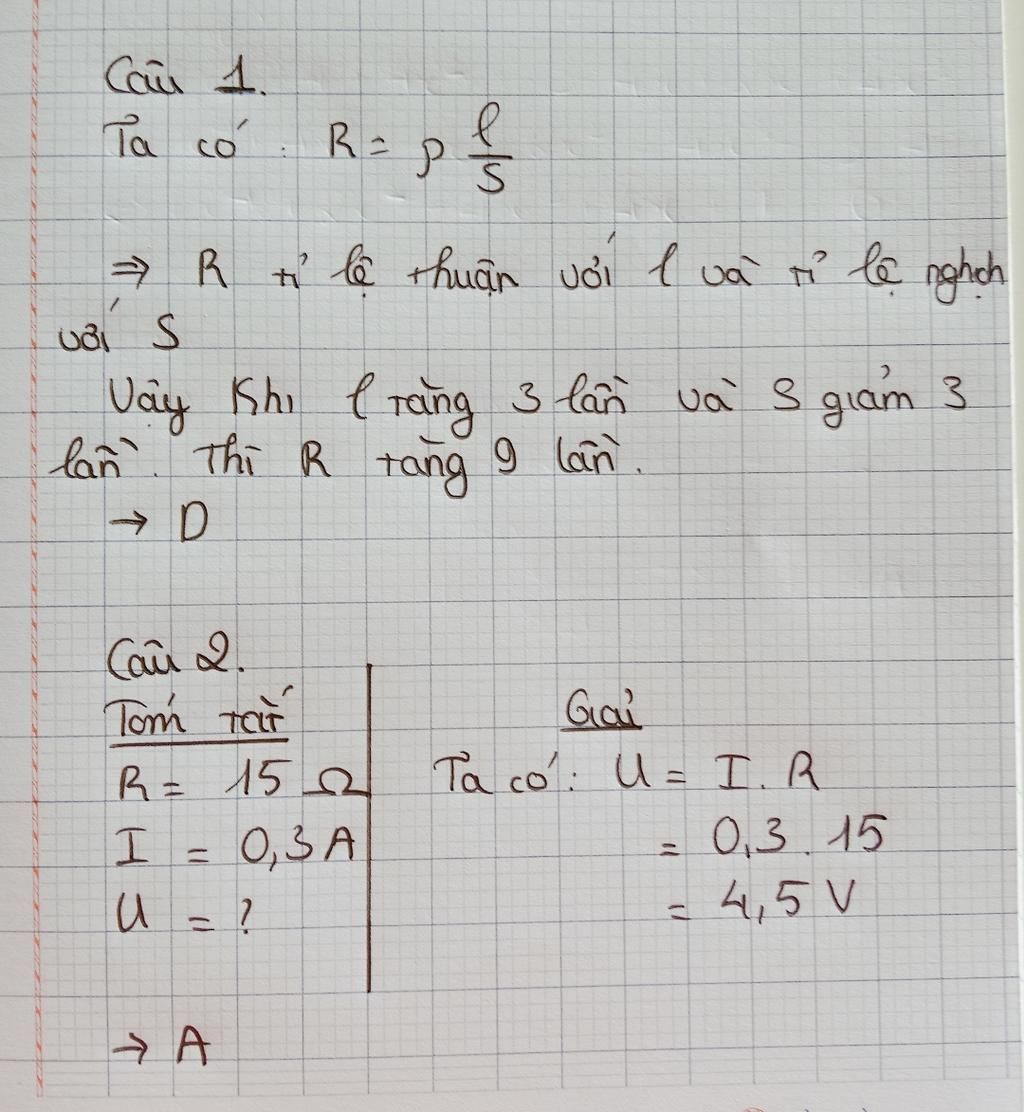 Câu 1.
Ta có : R = ρ l/S
⇒ R tỉ lệ thuận với l và tỉ lệ nghịch
với S
Vậy Khi l tăng 3 lần và S giảm 3
lần. Thì R tăng 9 lần.
→ D
Câu 2.
Tóm tắt
R = 15 Ω
I = 0,3 A
U = ?
Giải
Ta có : U = I. R
= 0,3 . 15
= 4,5 V
→ A